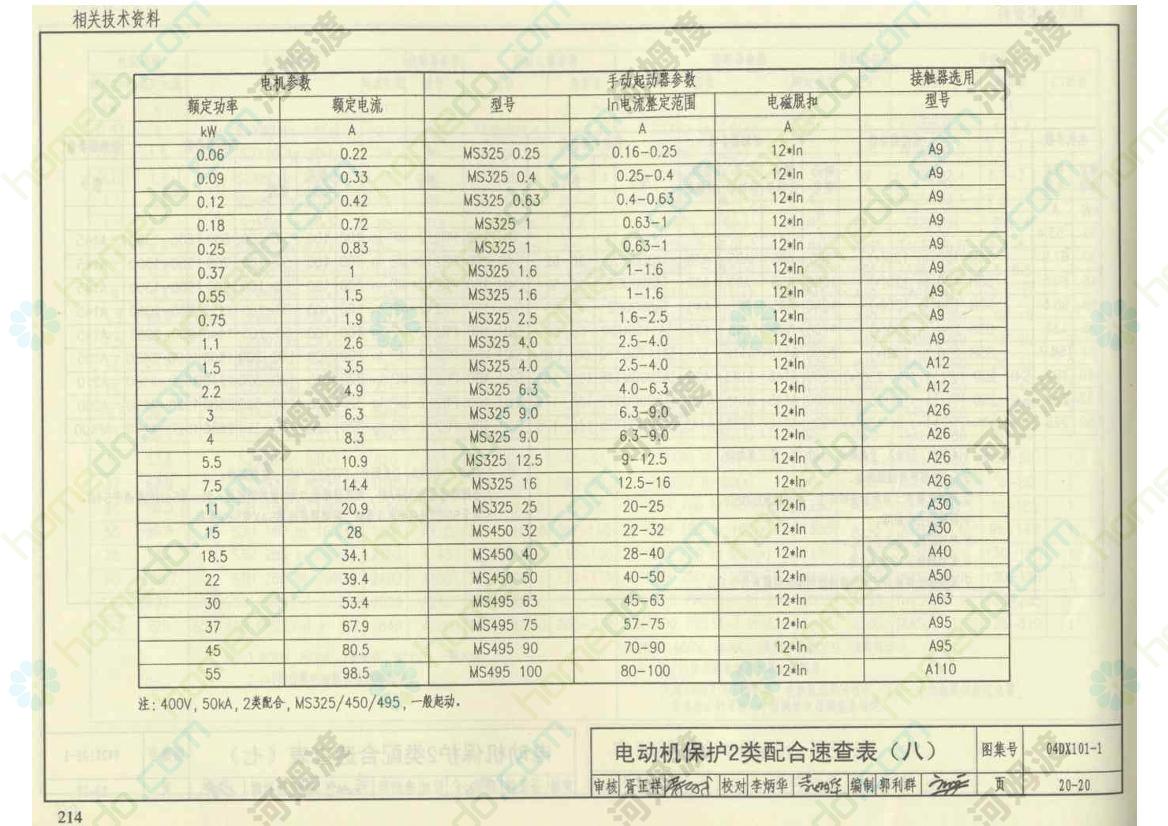 相关技术资料
电机参数 手动起动器参数 接触器选用
额定功率 额定电流 型号 In电流整定范围 电磁脱扣 型号
kW A A A
0.06 0.22 MS325 0.25 0.16-0.25 12*In A9
0.09 0.33 MS325 0.4 0.25-0.4 12*In A9
0.12 0.42 MS325 0.63 0.4-0.63 12*In A9
0.18 0.72 MS325 1 0.63-1 12*In A9
0.25 0.83 MS325 1 0.63-1 12*In A9
0.37 1 MS325 1.6 1-1.6 12*In A9
0.55 1.5 MS325 1.6 1-1.6 12*In A9
0.75 1.9 MS325 2.5 1.6-2.5 12*In A9
1.1 2.6 MS325 4.0 2.5-4.0 12*In A9
1.5 3.5 MS325 4.0 2.5-4.0 12*In A12
2.2 4.9 MS325 6.3 4.0-6.3 12*In A12
3 6.3 MS325 9.0 6.3-9.0 12*In A26
4 8.3 MS325 9.0 6.3-9.0 12*In A26
5.5 10.9 MS325 12.5 9-12.5 12*In A26
7.5 14.4 MS325 16 12.5-16 12*In A26
11 20.9 MS325 25 20-25 12*In A30
15 28 MS450 32 22-32 12*In A30
18.5 34.1 MS450 40 28-40 12*In A40
22 39.4 MS450 50 40-50 12*In A50
30 53.4 MS495 63 45-63 12*In A63
37 67.9 MS495 75 57-75 12*In A95
45 80.5 MS495 90 70-90 12*In A95
55 98.5 MS495 100 80-100 12*In A110
注: 400V, 50kA, 2类配合, MS325/450/495, 一般起动.
电动机保护2类配合速查表（八） 图集号 04DX101-1
审核 胥正祥 校对 李炳华 李炳华 编制 郭利群 页 20-20
214
homedo.com
河姆渡